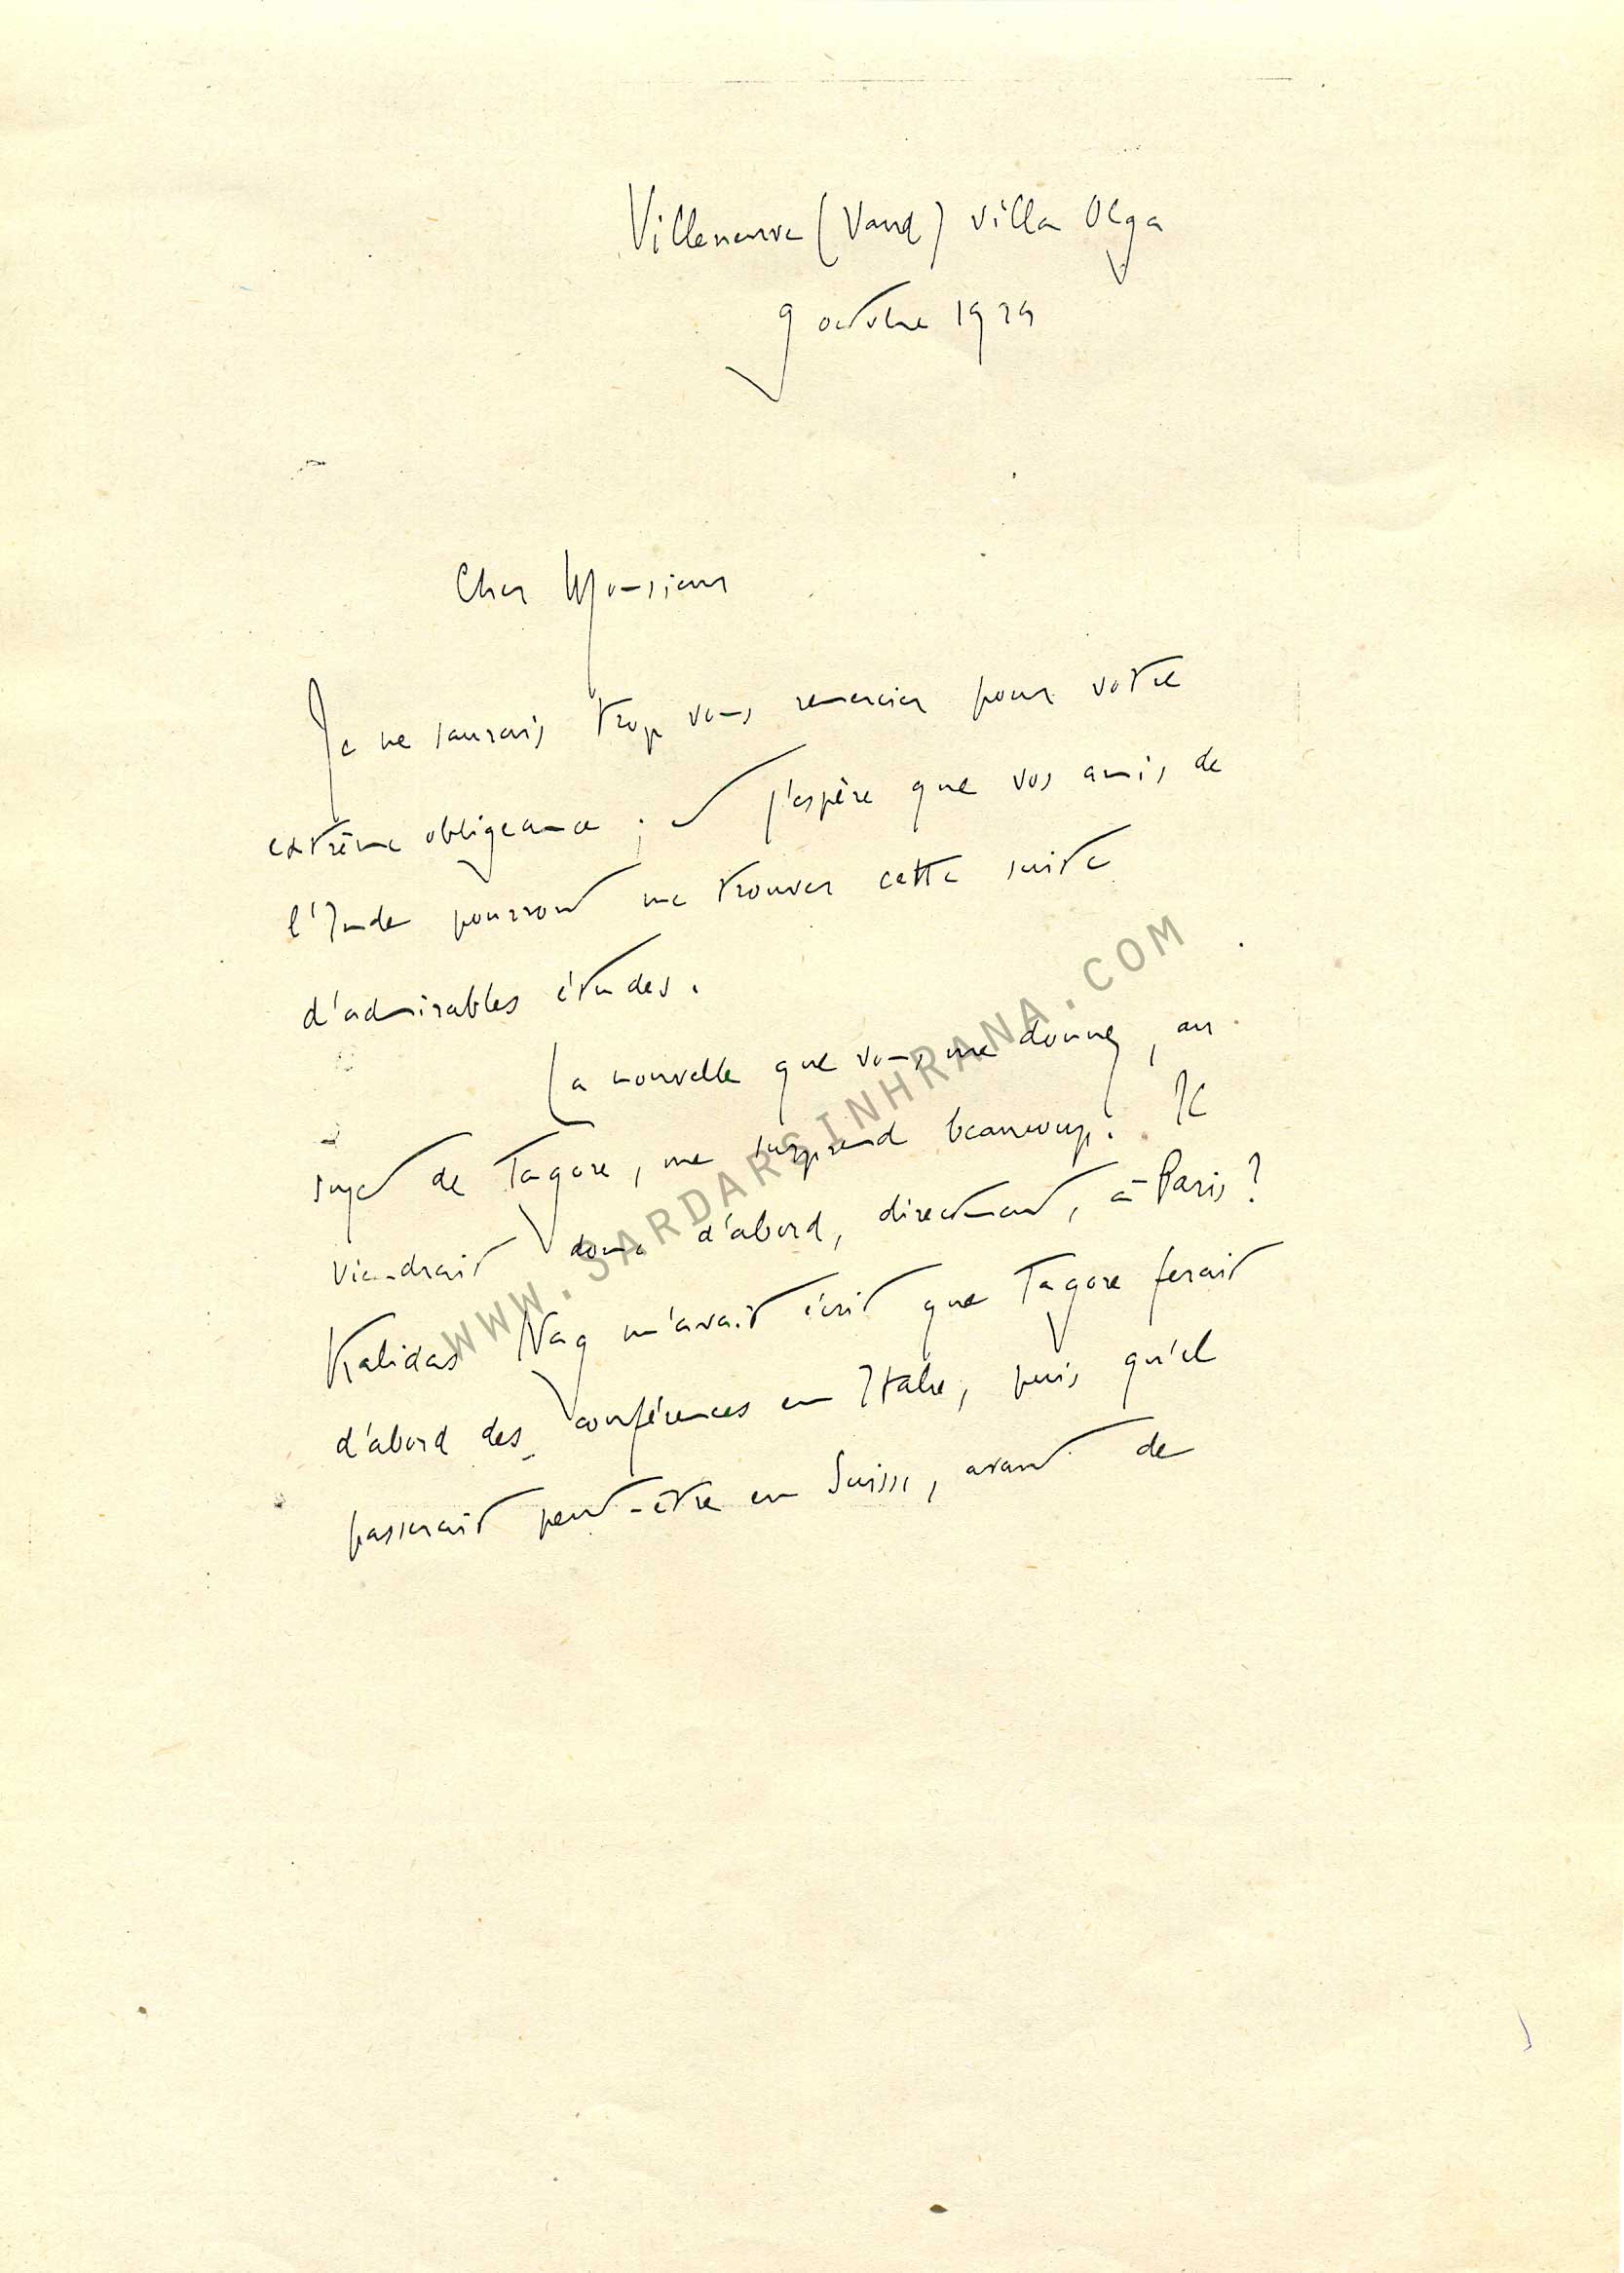 Villeneuve (Vaud) villa Olga
9 octobre 1929
Cher Monsieur
Je ne saurais trop vous remercier pour votre
extrême obligeance ; et j'espère que vos amis de
l'Inde pourront me trouver cette suite
d'admirables études.
La nouvelle que vous me donnez, au
sujet de Tagore, me surprend beaucoup. Il
viendrait donc d'abord, directement, à Paris ?
Kalidas Nag m'avait écrit que Tagore ferait
d'abord des conférences en Italie, puis qu'il
passerait peut-être en Suisse, avant de
WWW.SARDARSINHRANA.COM